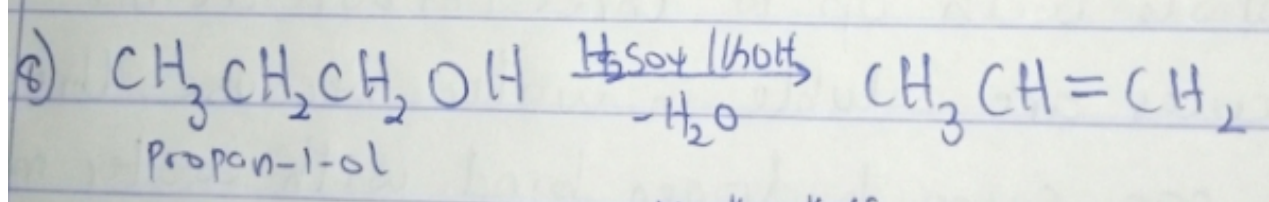 8) CH₃CH₂CH₂OH H₂SO₄/hot -H₂O CH₃CH=CH₂
Propan-1-ol